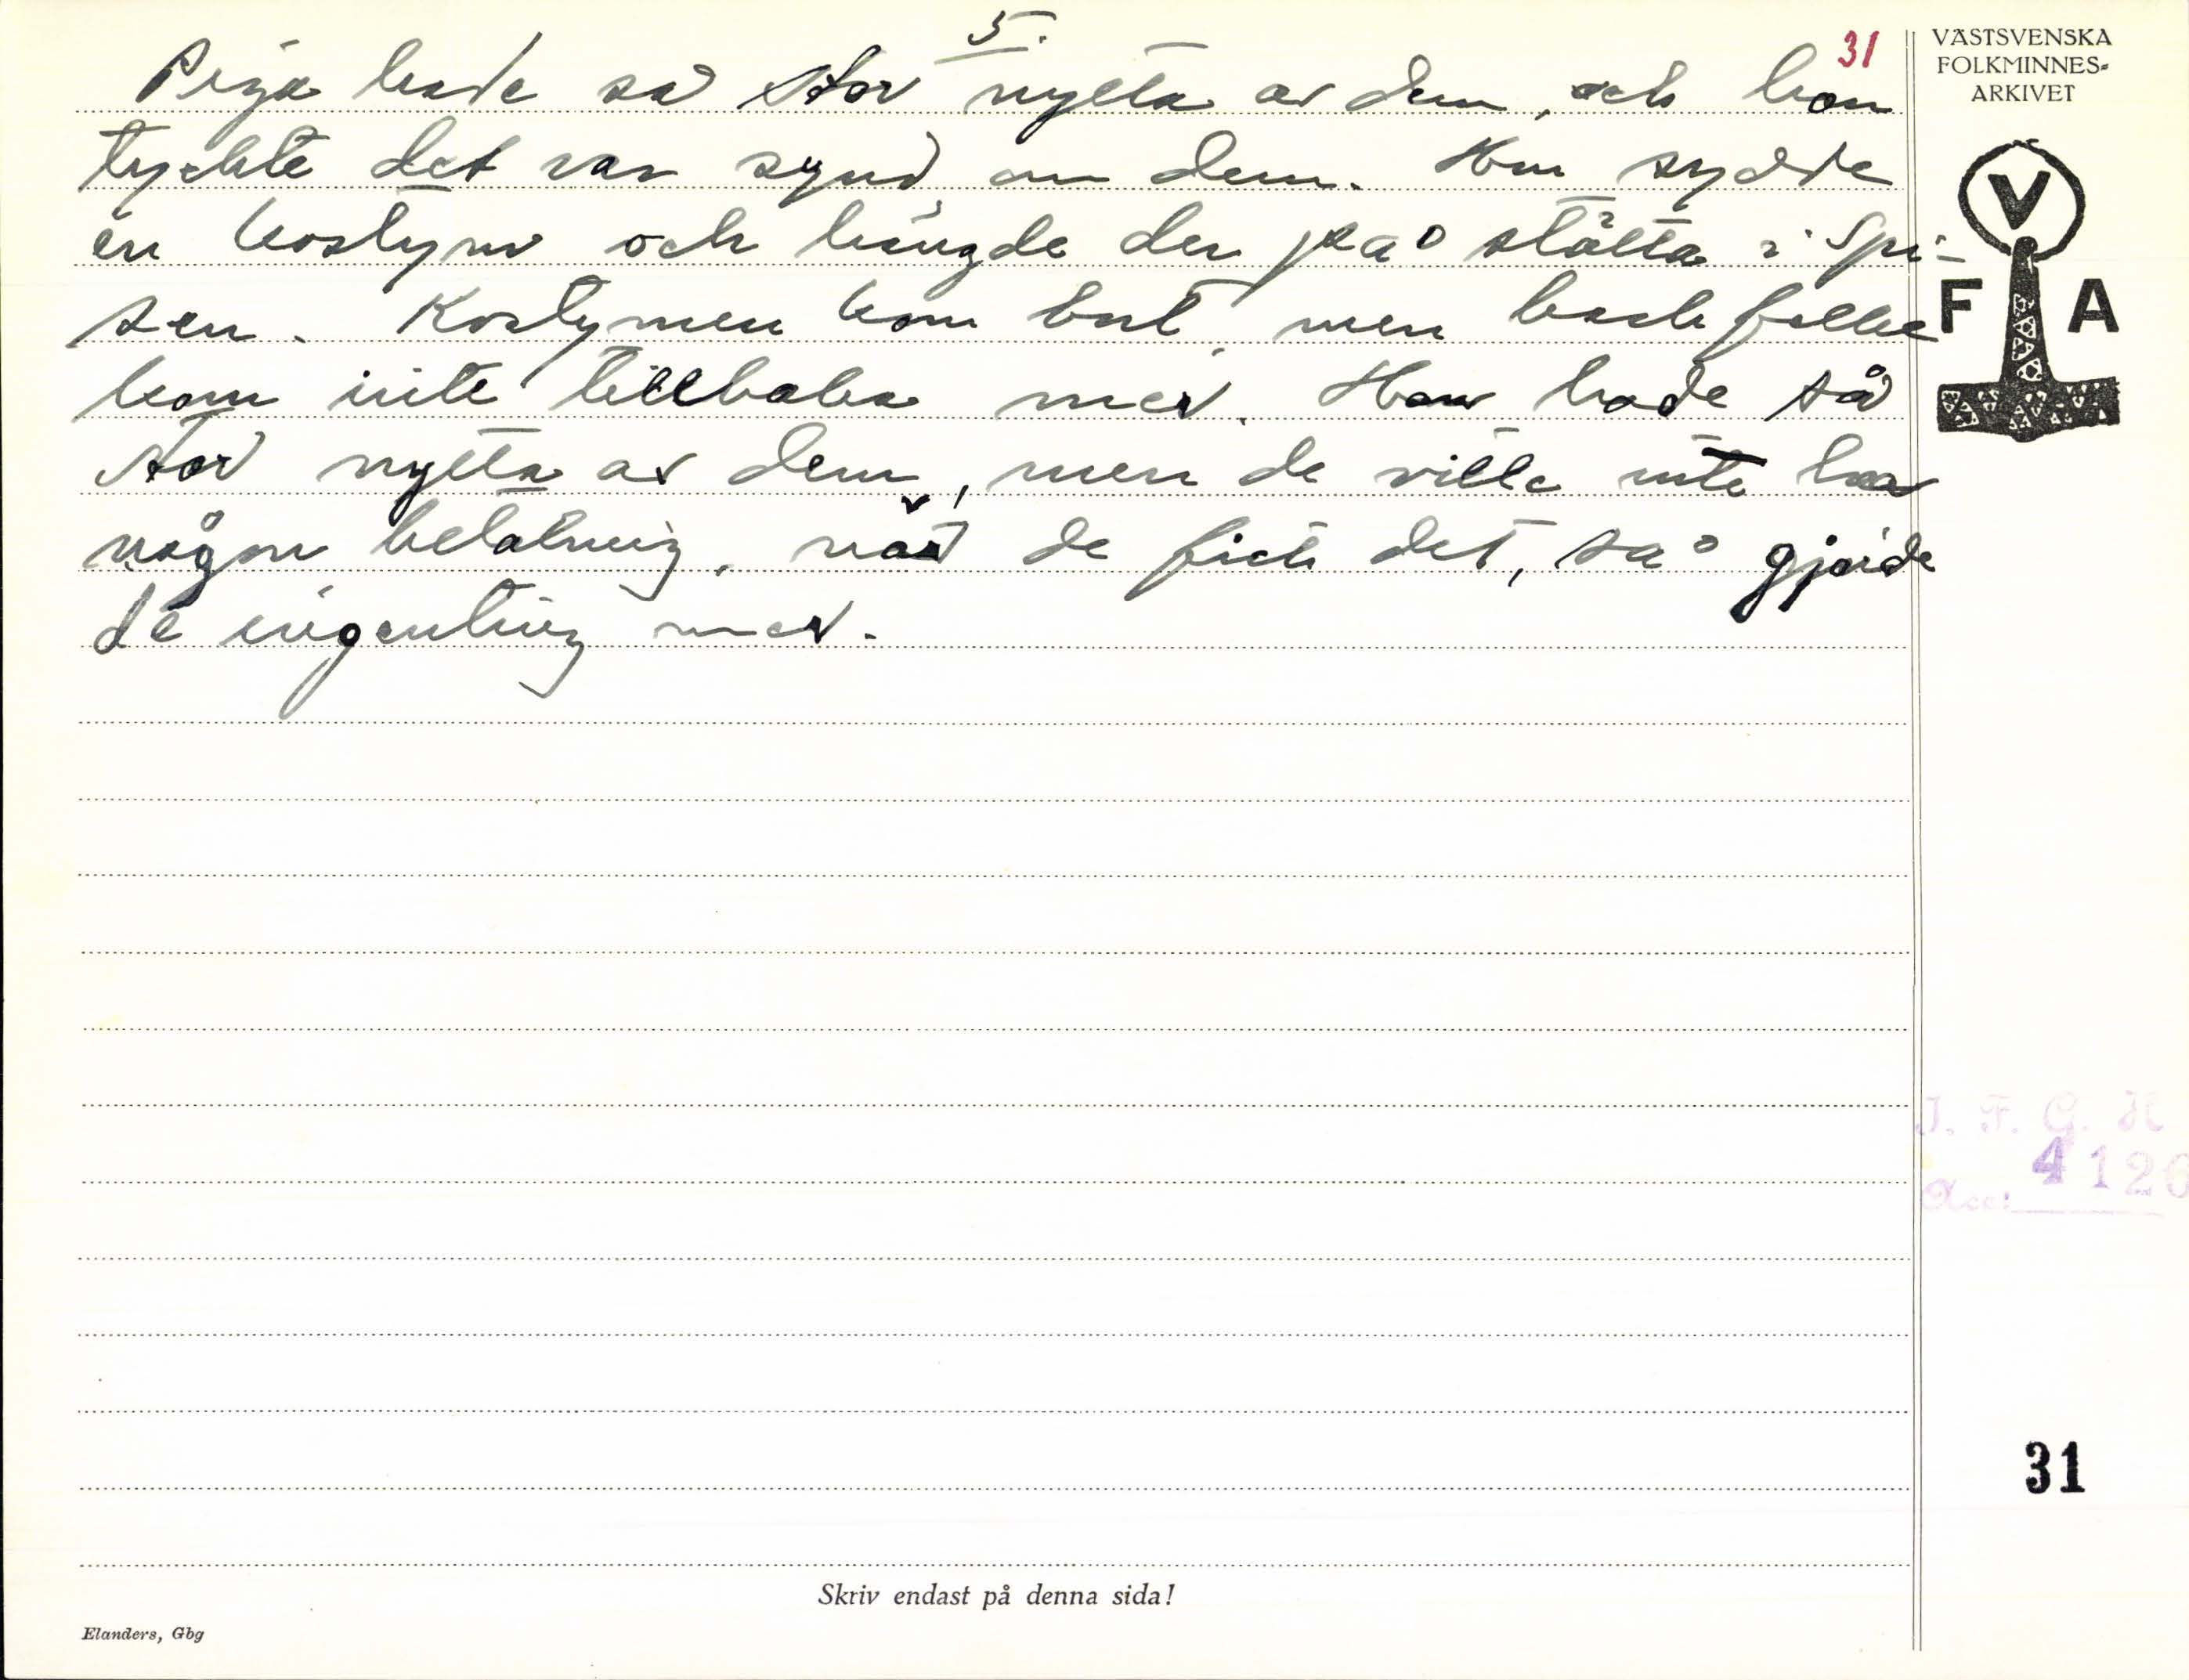 5.
31
Piga hade så stor nytta av dem, och hon
tyckte det var synd om dem. Hon sydde
en kostym och hängde den på stätta i Spi-
sen. Kostymen kom bort, men
kom inte tillbaka mer. Hon hade så
stor nytta av dem, men de ville inte ha
någon betalning, när de fick det, så gjorde
de ingenting mer.
VÄSTSVENSKA
FOLKMINNES=
ARKIVET
V
F A
I. F. G. H
4126
Acc:
31
Skriv endast på denna sida!
Elanders, Gbg